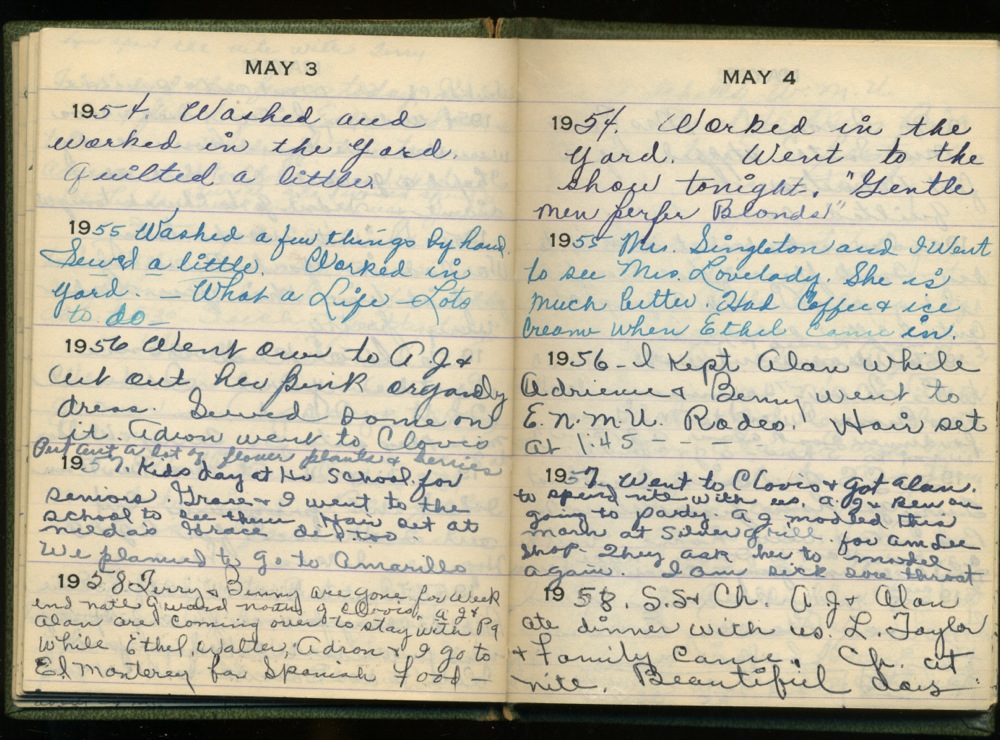 MAY 3
1954. Washed and
worked in the Yard.
Quilted a little.
1955 Washed a few things by hand.
Sewed a little. Worked in
yard. — What a Life — Lots
to do —
1956 Went over to A.J. &
cut out her pink organdy
dress. Sewed some on
it. Adron went to Clovis
Put out a lot of flower plants &
1957. Kids day at Hi School for
seniors. Grace & I went to the
school to see them Hair set at
nelda's Grace did too
We planned to go to Amarillo
1958 Terry & Benny are gone for Week
end nate guard north of Clovis, A J &
Alan are coming over to stay with Pq
while Ethel, Walter, Adron & I go to
El Monterey for Spanish Food —
MAY 4
1954. Worked in the
yard. Went to the
show tonight. "Gentle
men perfer Blonds!"
1955 Mrs. Singleton and I Went
to see Mrs. Lovelady. She is
much better. Had Coffee & ice
cream when Ethel came in.
1956 - I Kept Alan while
Adrienne & Benny went to
E.N.M.U. Rodeo. Hair set
at 1:45 - - -
1957. Went to Clovis & got Alan.
to spend nite with us. A.J. & Ben are
going to party. A J modled this
morn at Silver Grill. for Am Lee
Shop. They ask her to model
again. I am sick sore throat
1958. S.S & Ch. A J & Alan
ate dinner with us. L. Taylor
& Family came. Ch. at
nite. Beautiful day